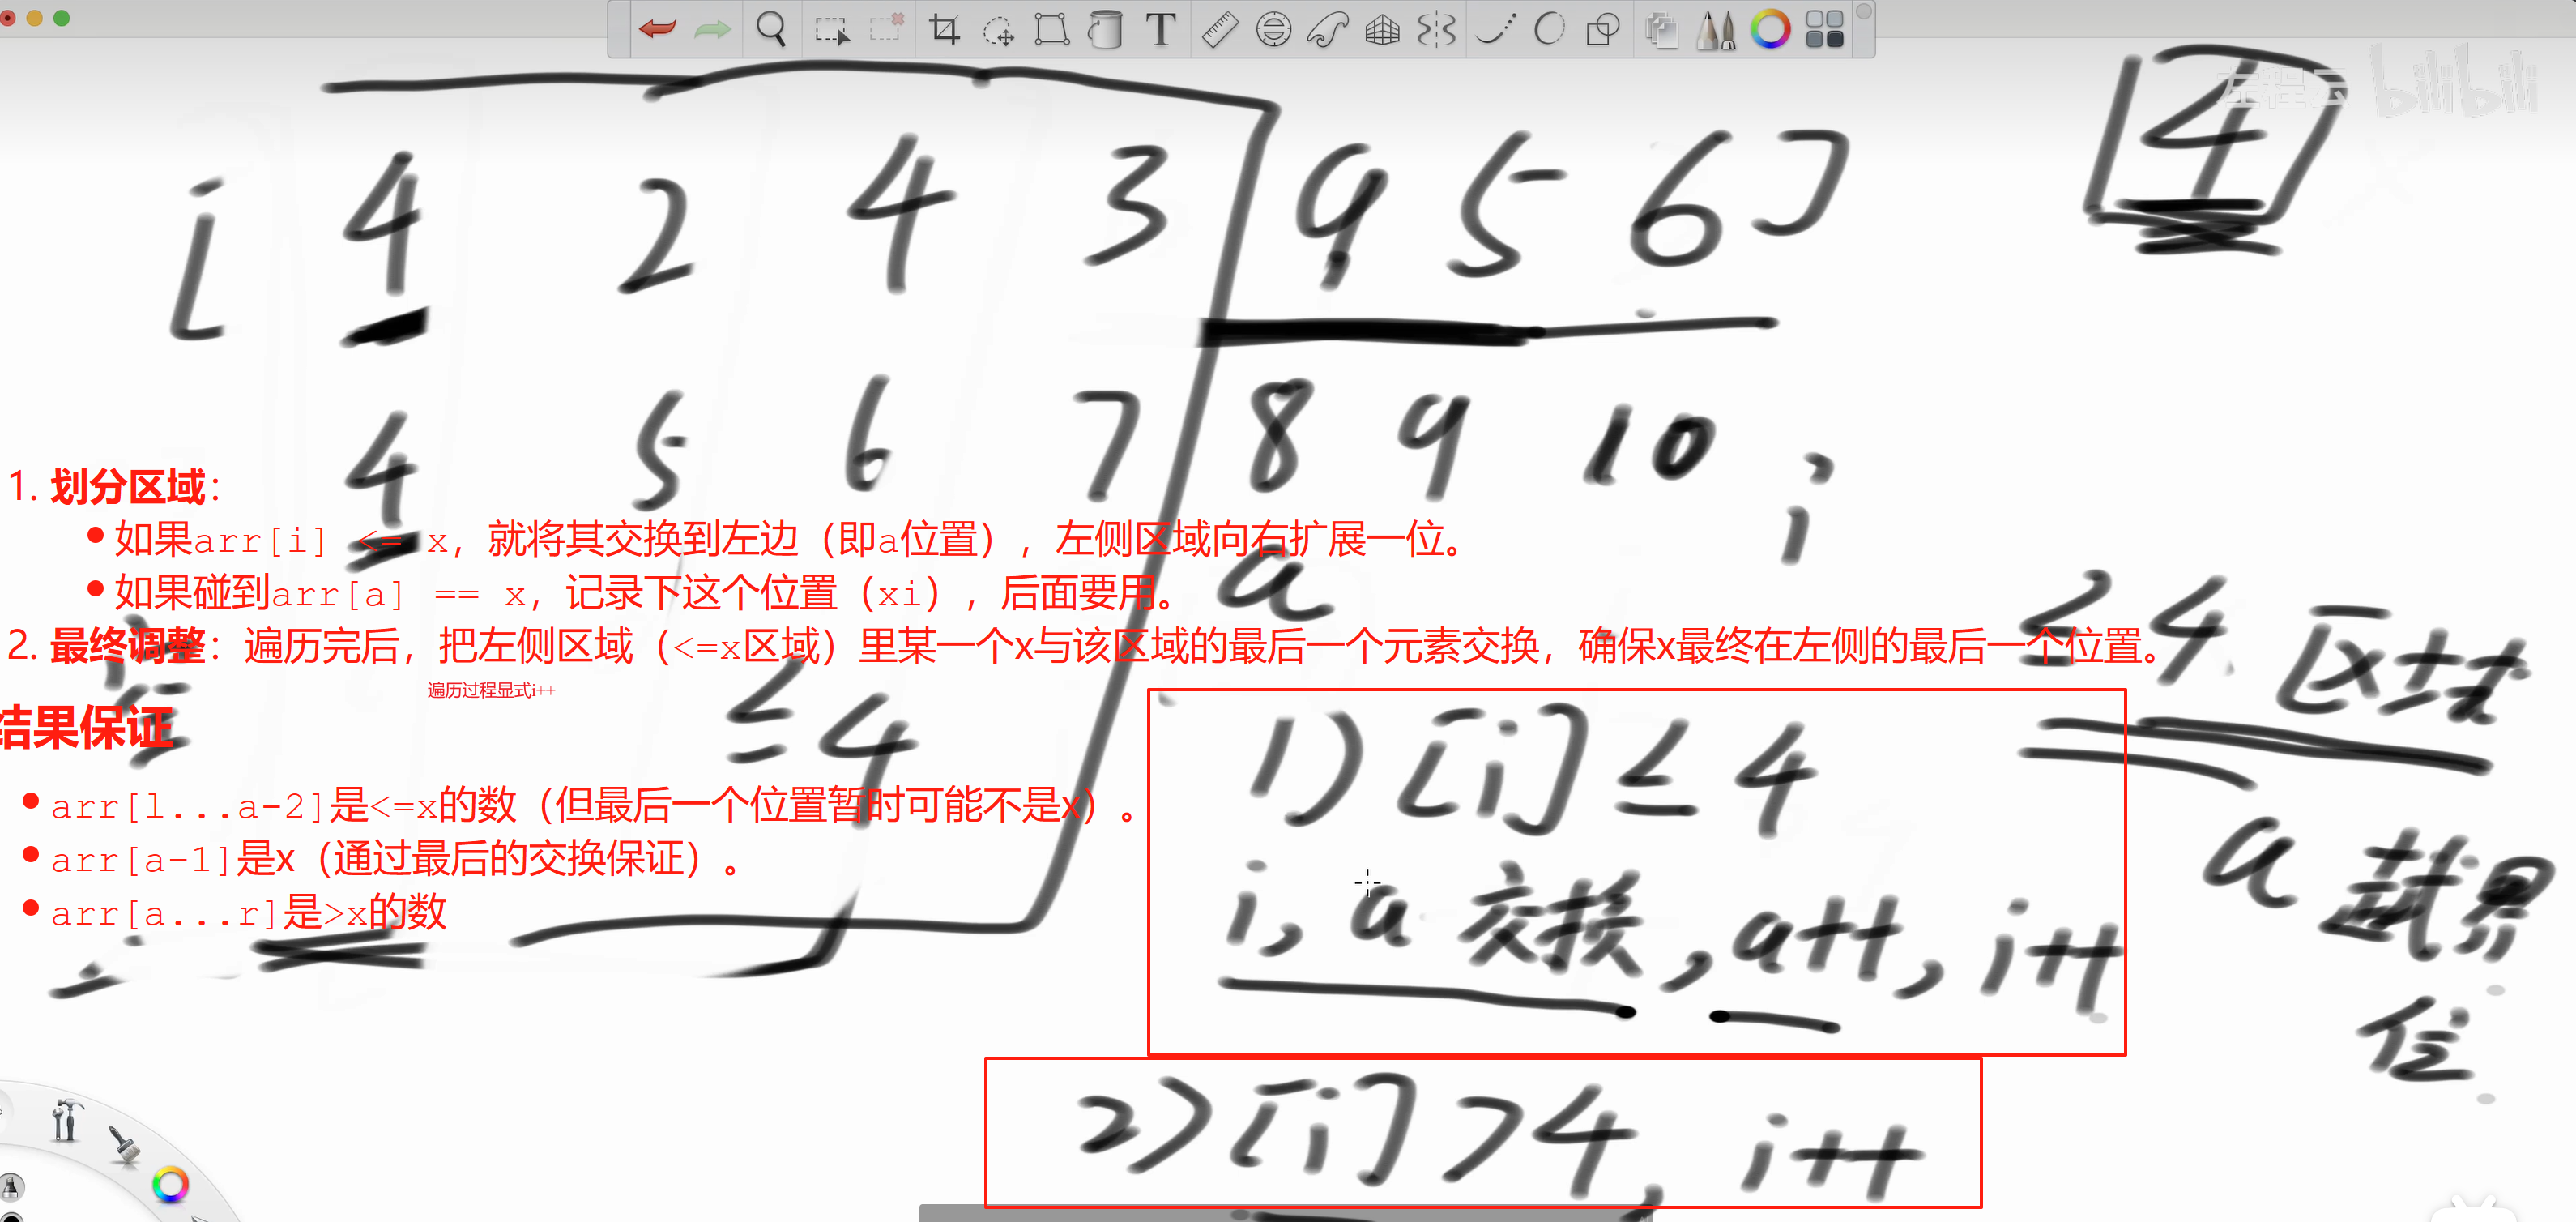 左程云 bilibili
4
[ 4 2 4 3 9 5 6 ]
4 5 6 7 8 9 10 ;
i
a
1. 划分区域：
如果arr[i] <= x，就将其交换到左边（即a位置），左侧区域向右扩展一位。
如果碰到arr[a] == x，记录下这个位置（xi），后面要用。
2. 最终调整：遍历完后，把左侧区域（<=x区域）里某一个x与该区域的最后一个元素交换，确保x最终在左侧的最后一个位置。
遍历过程显式i++
≤4
≤4 区域
a 越界
位
结果保证
arr[l...a-2]是<=x的数（但最后一个位置暂时可能不是x）。
arr[a-1]是x（通过最后的交换保证）。
arr[a...r]是>x的数
1) [i] ≤ 4
i, a 交换, a++, i++
2) [i] > 4, i++